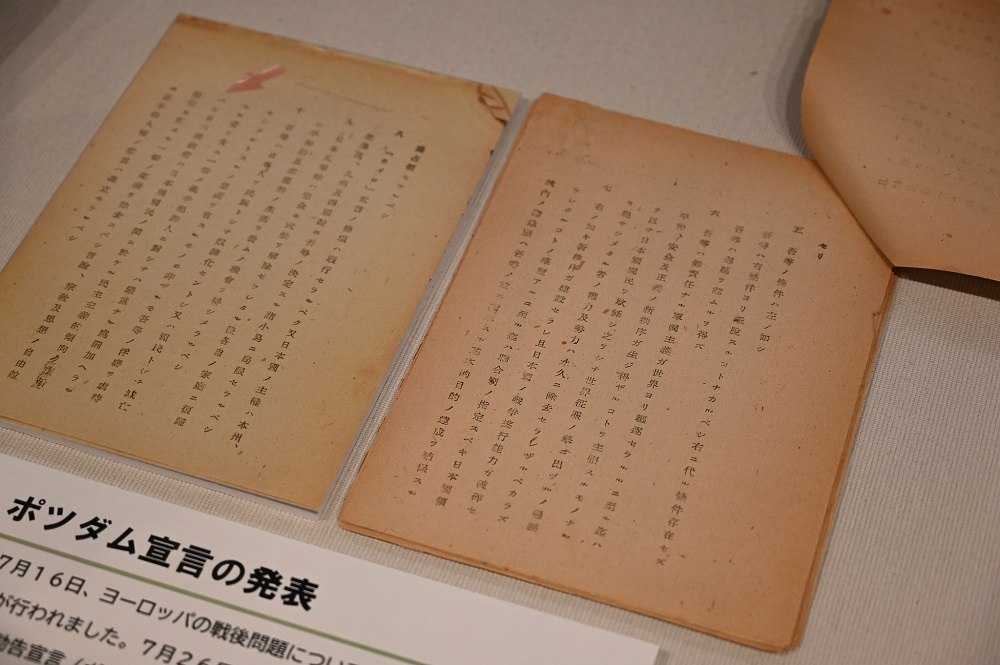 セリ
五 吾等ノ條件ハ左ノ如シ
吾等ハ右條件ヨリ離脱スルコトナカルベシ右ニ代ル條件存在セズ
吾等ハ遅延ヲ認ムルヲ得ズ
六 吾等ハ無責任ナル軍國主義ガ世界ヨリ驅逐セラルルニ至ル迄ハ
平和、安全及正義ノ新秩序ガ生ジ得ザルコトヲ主張スルモノナル
ヲ以テ日本國國民ヲ欺瞞シ之ヲシテ世界征服ノ擧ニ出ヅルノ過誤
ヲ犯サシメタル者ノ權力及勢力ハ永久ニ除去セラレザルベカラズ
七 右ノ如キ新秩序ガ建設セラレ且日本國ノ戰爭遂行能力ガ破碎セ
ラレタルコトノ確證アルニ至ル迄ハ聯合國ノ指定スベキ日本國領
域內ノ諸地點ハ吾等ノ茲ニ指示スル基本的目的ノ達成ヲ確保スル
爲占領セラルベシ
八、「カイロ」宣言ノ條項ハ履行セラルベク又日本國ノ主權ハ本州、
北海道、九州及四國竝ニ吾等ノ決定スル諸小島ニ局限セラルベシ
九、日本國軍隊ハ完全ニ武裝ヲ解除セラレタル後各自ノ家庭ニ復歸
シ平和的且生產的ノ生活ヲ營ムノ機會ヲ得シメラルベシ
十 吾等ハ日本人ヲ民族トシテ奴隸化セントシ又ハ國民トシテ滅亡
セシメントスルノ意圖ヲ有スルモノニ非ザルモ吾等ノ俘虜ヲ虐待
セル者ヲ含ム一切ノ戰爭犯罪人ニ對シテハ嚴重ナル處罰加ヘラル
ベシ日本國政府ハ日本國國民ノ間ニ於ケル民主主義的傾向ノ復活
强化ニ對スル一切ノ障礙ヲ除去スベシ言論、宗敎及思想ノ自由竝
ニ基本的人權ノ尊重ハ確立セラルベシ
ポツダム宣言の発表
7月16日、ヨーロッパの戦後問題につい
が行われました。7月26
勧告宣言